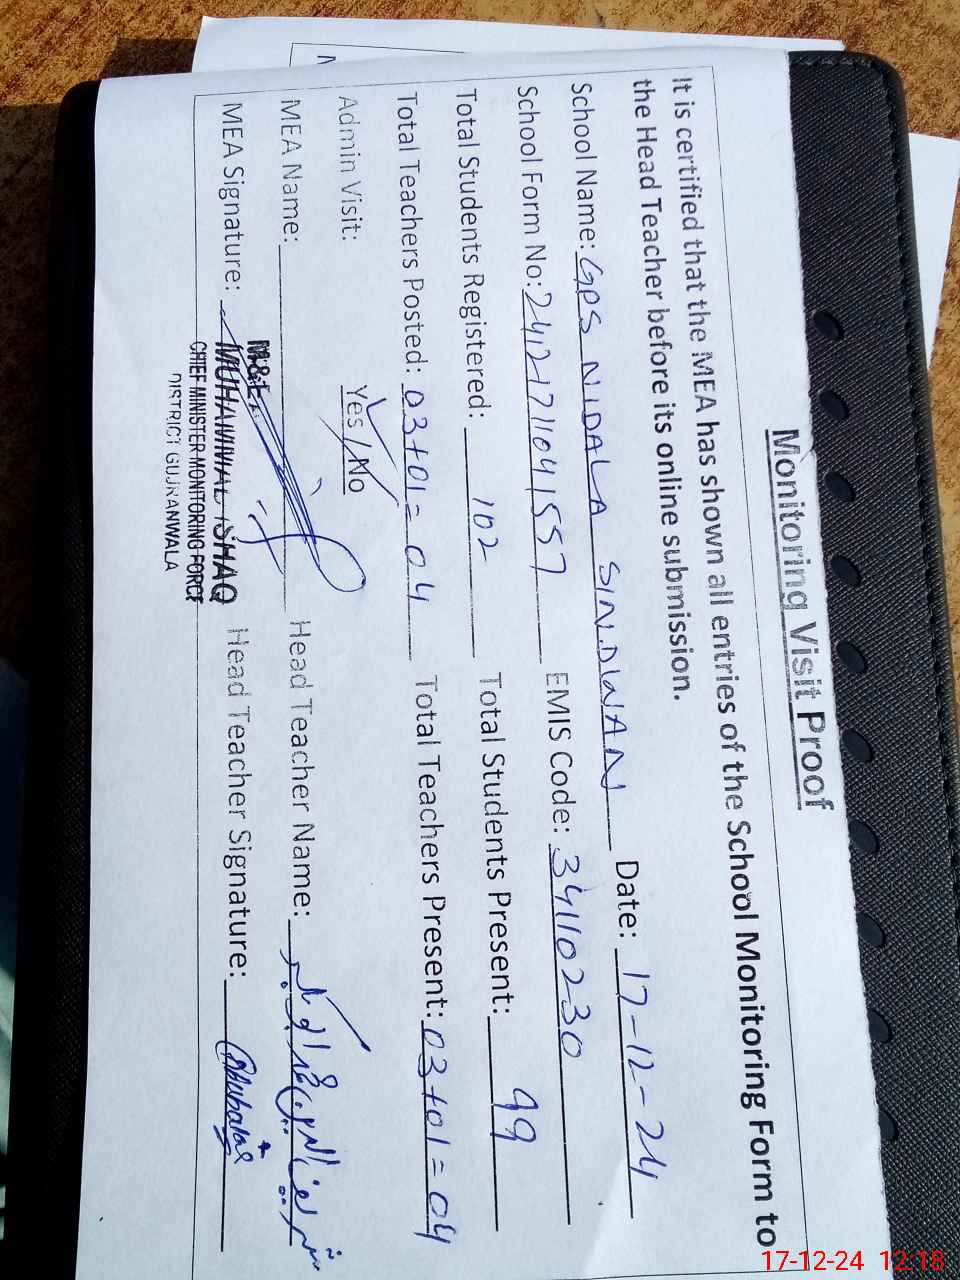 Monitoring Visit Proof
It is certified that the MEA has shown all entries of the School Monitoring Form to
the Head Teacher before its online submission.
School Name: GPS NIDALA SINDWAN Date: 17-12-24
School Form No: 24121711041557 EMIS Code: 34110230
Total Students Registered: 102 Total Students Present: 99
Total Teachers Posted: 03+01=04 Total Teachers Present: 03+01=04
Admin Visit: Yes/No
MEA Name: Head Teacher Name:
MEA Signature: Head Teacher Signature:
M&E
MUHAMMAD ISHAQ
CHIEF MINISTER MONITORING FORCE
DISTRICT GUJRANWALA
17-12-24 12:18